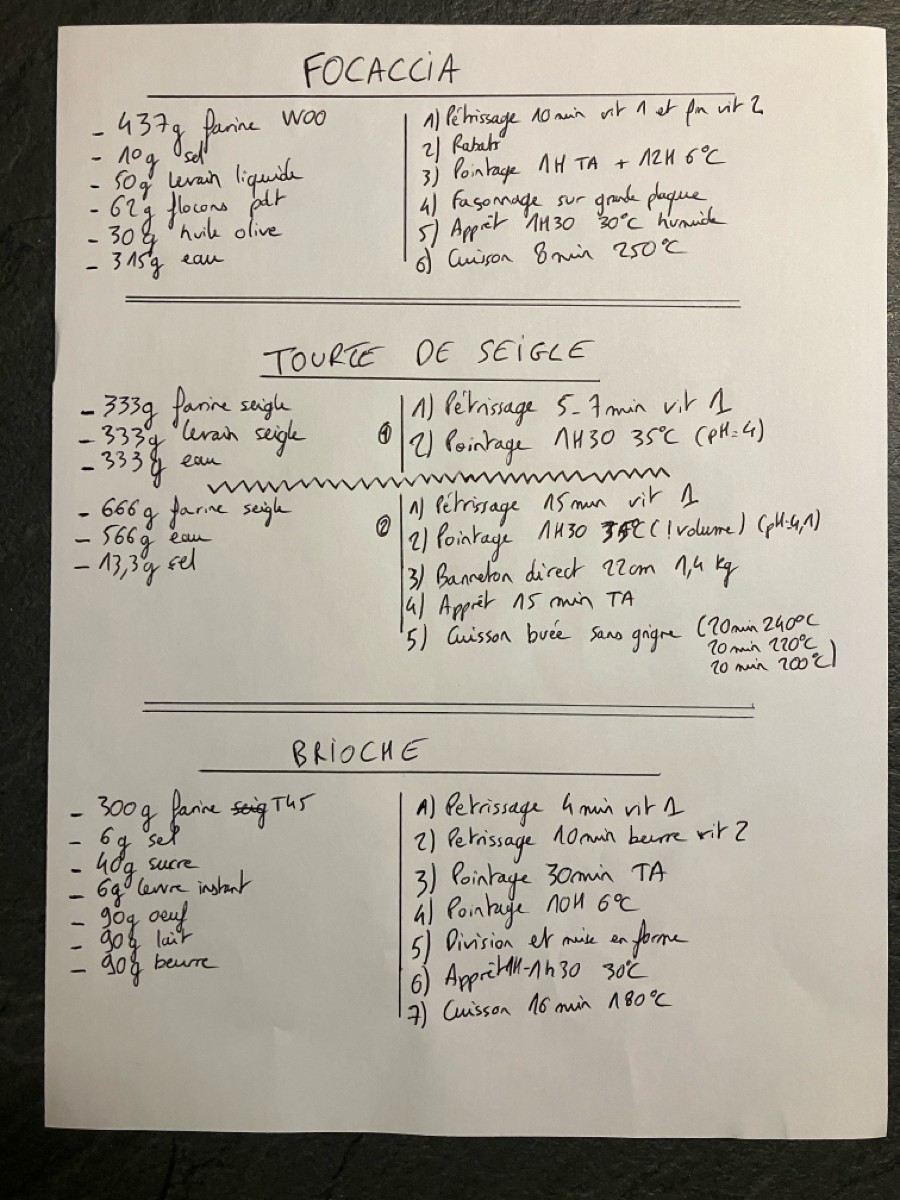 FOCACCIA
- 437g farine W00
- 10g sel
- 50g levain liquide
- 62g flocons pdt
- 30g huile olive
- 315g eau
1) Pétrissage 10 min vit 1 et fin vit 2
2) Rabats
3) Pointage 1H TA + 12H 6°C
4) Façonnage sur grande plaque
5) Apprêt 1H30 30°C humide
6) Cuisson 8 min 250°C
TOURTE DE SEIGLE
- 333g farine seigle
- 333g levain seigle
- 333g eau
①
1) Pétrissage 5-7 min vit 1
2) Pointage 1H30 35°C (pH=4)
- 666g farine seigle
- 566g eau
- 13,3g sel
②
1) Pétrissage 15 min vit 1
2) Pointage 1H30 35°C (! volume) (pH=4,1)
3) Banneton direct 22cm 1,4 kg
4) Apprêt 15 min TA
5) Cuisson buée sans grigne (20 min 240°C
20 min 220°C
20 min 200°C)
BRIOCHE
- 300g farine seig T45
- 6g sel
- 40g sucre
- 6g levure instant
- 90g oeuf
- 90g lait
- 90g beurre
1) Petrissage 4 min vit 1
2) Petrissage 10 min beurre vit 2
3) Pointage 30min TA
4) Pointage 10H 6°C
5) Division et mise en forme
6) Apprêt 1H-1h30 30°C
7) Cuisson 16 min 180°C